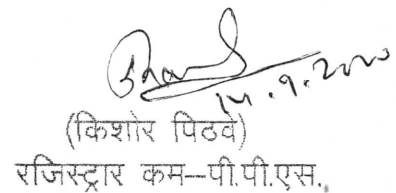 14.9.2020
(किशोर पिठवे)
रजिस्ट्रार कम--पी.पी.एस.